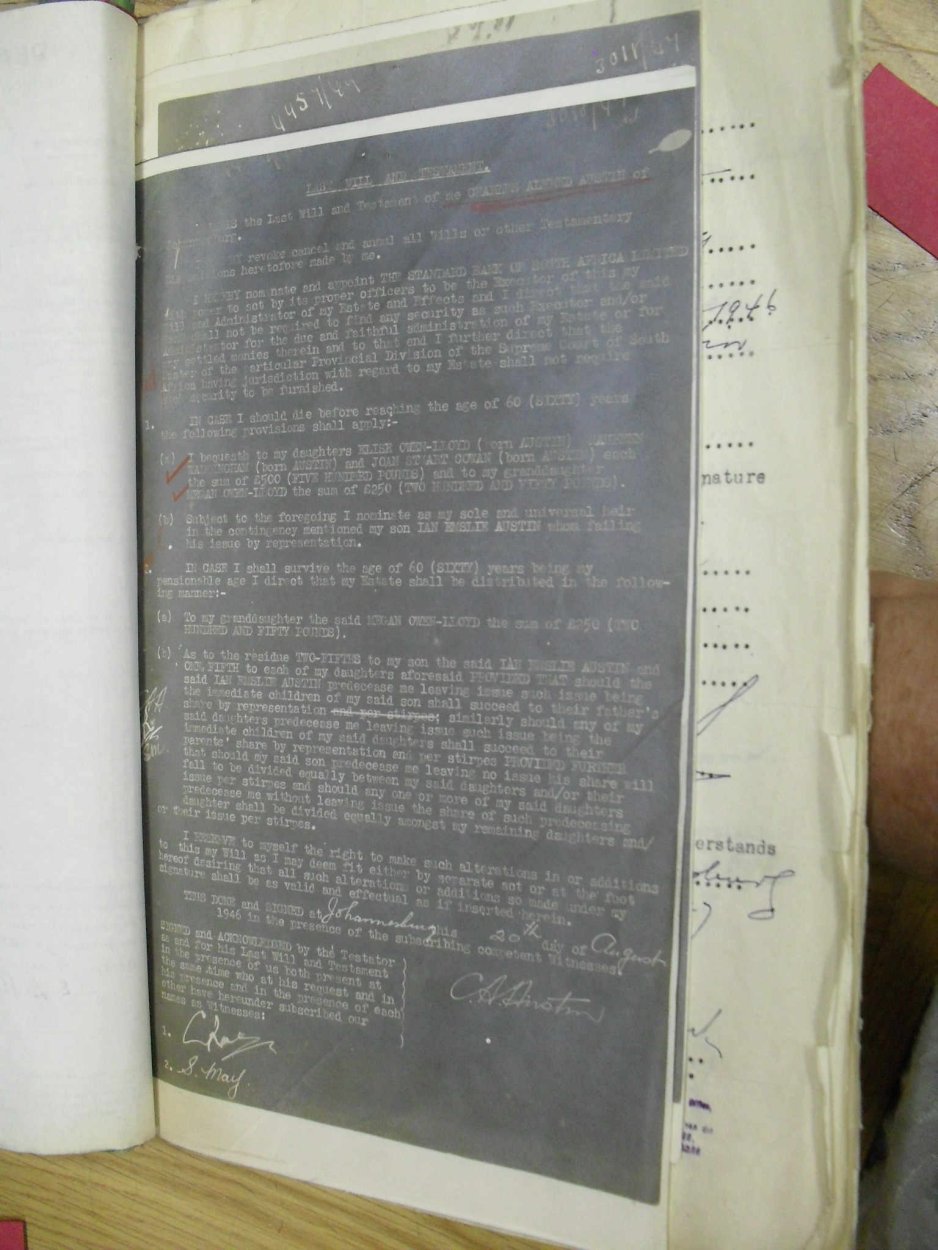 4457/49
LAST WILL AND TESTAMENT.
THIS is the Last Will and Testament of me CHARLES ALFRED AUSTIN of
Johannesburg.
I HEREBY revoke cancel and annul all Wills or other Testamentary
Dispositions heretofore made by me.
I HEREBY nominate and appoint THE STANDARD BANK OF SOUTH AFRICA LIMITED
with power to act by its proper officers to be the Executor of this my
Will and Administrator of my Estate and Effects and I direct that the said
Bank shall not be required to find any security as such Executor and/or
Administrator for the due and faithful administration of my Estate or for
any settled monies therein and to that end I further direct that the
Master of the particular Provincial Division of the Supreme Court of South
Africa having jurisdiction with regard to my Estate shall not require
such security to be furnished.
1. IN CASE I should die before reaching the age of 60 (SIXTY) years
the following provisions shall apply:-
(a) I bequeath to my daughters ELISE OWEN-LLOYD (born AUSTIN)
(born AUSTIN) and JOAN STUART COWAN (born AUSTIN) each
the sum of £500 (FIVE HUNDRED POUNDS) and to my granddaughter
MEGAN OWEN-LLOYD the sum of £250 (TWO HUNDRED AND FIFTY POUNDS).
(b) Subject to the foregoing I nominate as my sole and universal heir
in the contingency mentioned my son IAN EMSLIE AUSTIN whom failing
his issue by representation.
2. IN CASE I shall survive the age of 60 (SIXTY) years being my
pensionable age I direct that my Estate shall be distributed in the follow-
ing manner:-
(a) To my granddaughter the said MEGAN OWEN-LLOYD the sum of £250 (TWO
HUNDRED AND FIFTY POUNDS).
(b) As to the residue TWO-FIFTHS to my son the said IAN EMSLIE AUSTIN and
ONE FIFTH to each of my daughters aforesaid PROVIDED THAT should the
said IAN EMSLIE AUSTIN predecease me leaving issue such issue being
the immediate children of my said son shall succeed to their father's
share by representation and per stirpes; similarly should any of my
said daughters predecease me leaving issue such issue being the
immediate children of my said daughters shall succeed to their
parents' share by representation and per stirpes PROVIDED FURTHER
that should my said son predecease me leaving no issue his share will
fall to be divided equally between my said daughters and/or their
issue per stirpes and should any one or more of my said daughters
predecease me without leaving issue the share of such predeceasing
daughter shall be divided equally amongst my remaining daughters and/
or their issue per stirpes.
I RESERVE to myself the right to make such alterations in or additions
to this my Will as I may deem fit either by separate act or at the foot
hereof desiring that all such alterations or additions so made under my
signature shall be as valid and effectual as if inserted herein.
THUS DONE and SIGNED at Johannesburg this 20th day of August
1946 in the presence of the subscribing competent Witnesses.
SIGNED and ACKNOWLEDGED by the Testator
as and for his Last Will and Testament
in the presence of us both present at
the same time who at his request and in
his presence and in the presence of each
other have hereunder subscribed our
names as Witnesses:
C. A. Austin
1.
2. S. May.
1946
nature
erstands